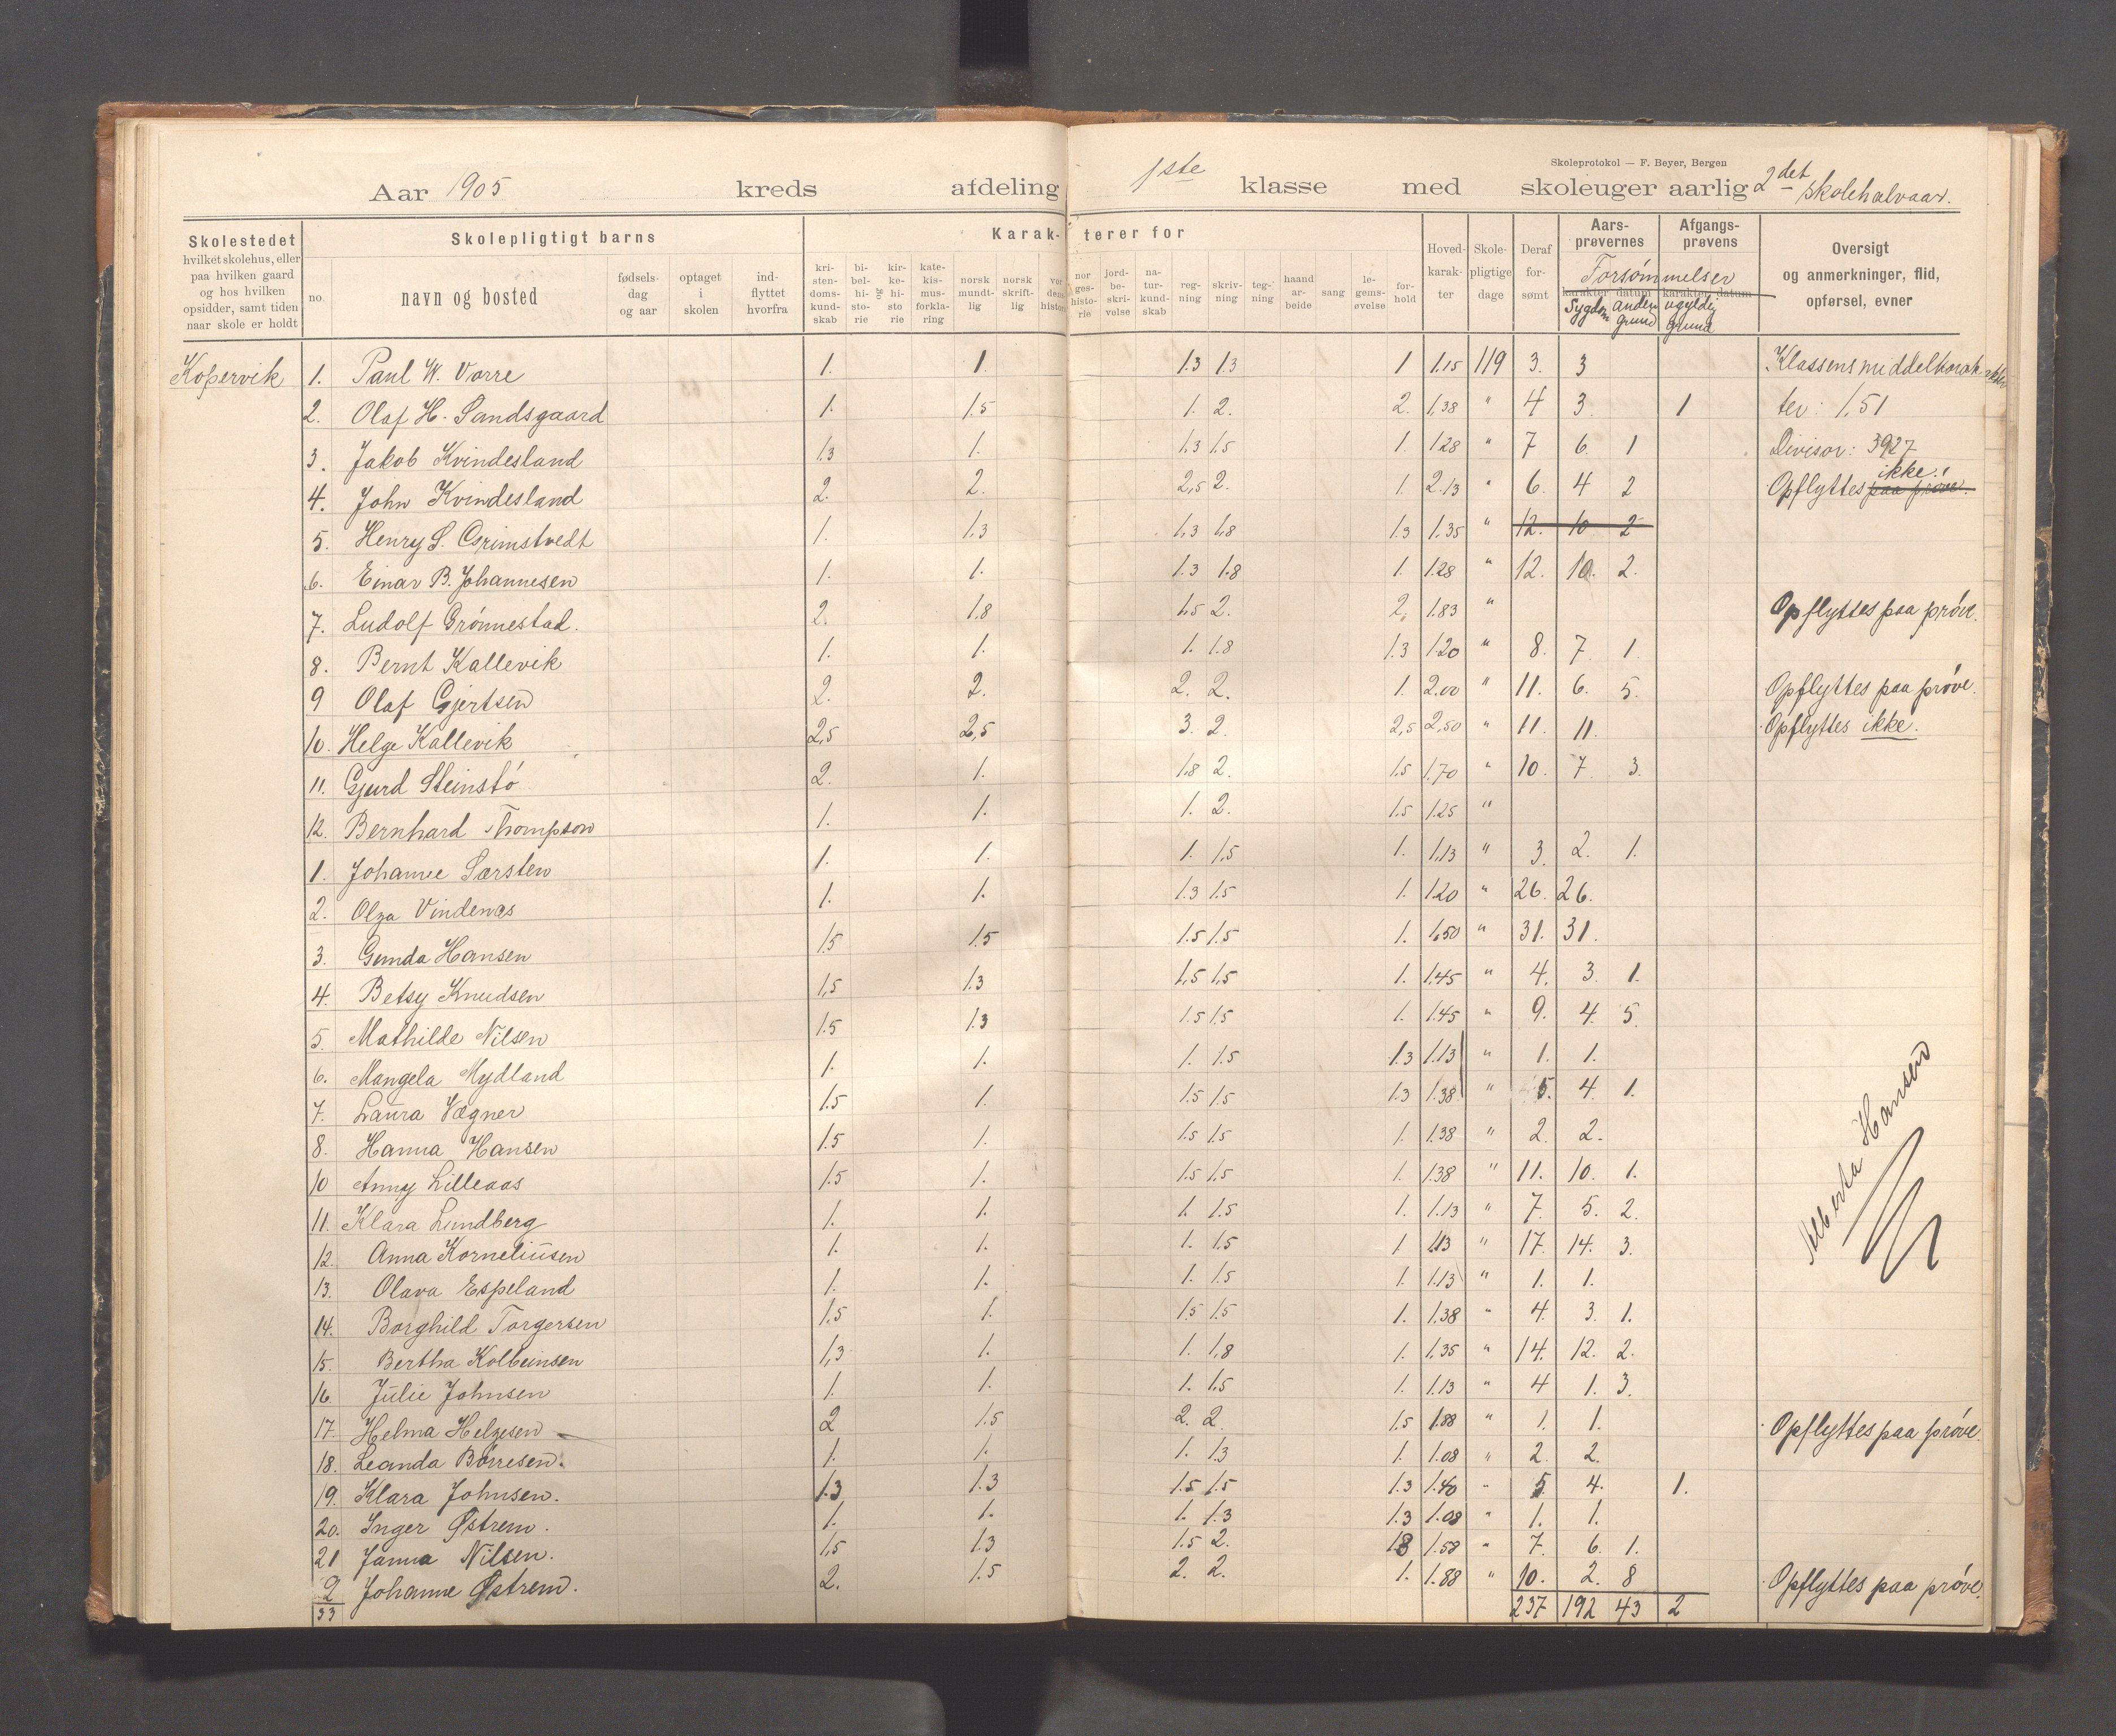 Skoleprotokol — F. Beyer, Bergen
Aar 1905 kreds afdeling 1ste klasse med skoleuger aarlig 2det skolehalvaar.
Skolestedet hvilket skolehus, eller paa hvilken gaard og hos hvilken opsidder, samt tiden naar skole er holdt
Skolepligtigt barns
no. navn og bosted fødsels-dag og aar optaget i skolen ind-flyttet hvorfra
Karak-terer for
kri-sten-doms-kund-skab bi-bel-hi-sto-rie og kir-ke-hi-sto rie kate-kis-mus-forkla-ring norsk mundt-lig norsk skrift-lig ver dens histori nor ges-histo-rie jord-be-skri-velse na-tur-kund-skab reg-ning skriv-ning teg-ning haand ar-beide sang le-gems-øvelse for-hold
Hoved-karak-ter Skole-pligtige dage Deraf for-sømt Aars-prøvernes karakter datum Afgangs-prøvens karakter datum
Forsømmelser
Sygdom anden grund ugyldig grund
Oversigt og anmerkninger, flid, opførsel, evner
Kopervik 1. Paul W. Vorre 1. 1. 1.3 1.3 1 1.15 119 3. 3 Klassens middelkarak
2. Olaf H. Sandsgaard 1. 1.5 1. 2. 2. 1,38 " 4 3. 1 ter: 1,51
3. Jakob Kvindesland 1.3 1. 1.3 1.5 1. 1.28 " 7 6. 1 Divisor: 3927
4. John Kvindesland 2. 2. 2,5 2. 1. 2.13 " 6. 4 2 Opflyttes paa prøve. ikke!
5. Henry S. Grimstvedt 1. 1,3 1,3 1,8 1.3 1.35 " 12. 10 2
6. Einar B. Johannesen 1. 1. 1.3 1.8 1. 1.28 " 12. 10. 2.
7. Ludolf Grønnestad. 2. 1.8 1,5 2. 2. 1.83 " Opflyttes paa prøve.
8. Bernt Kallevik 1. 1. 1. 1.8 1.3 1.20 " 8. 7. 1.
9 Olaf Gjertsen 2. 2. 2. 2. 1. 2.00 " 11. 6. 5. Opflyttes paa prøve.
10. Helge Kallevik 2,5 2,5 3. 2. 2,5 2,50 " 11. 11. Opflyttes ikke.
11. Gjurd Steinstø 2. 1. 1.8 2. 1.5 1.70 " 10. 7. 3.
12. Bernhard Thompson 1. 1. 1. 2. 1.5 1.25 "
1. Johanne Sørsten 1. 1. 1. 1.5 1. 1.13 " 3. 2. 1.
2. Olga Vindenæs 1. 1. 1.3 1.5 1. 1.20 " 26. 26.
3. Gunda Hansen 1.5 1.5 1.5 1.5 1. 1.50 " 31. 31.
4. Betsy Knudsen 1,5 1.3 1,5 1.5 1. 1.45 " 4. 3. 1.
5. Mathilde Nilsen 1.5 1.3 1.5 1.5 1. 1.45 " 9. 4. 5.
6. Mangela Mydland 1. 1. 1. 1.5 1.3 1.13 " 1. 1.
7. Laura Vægner 1.5 1. 1.5 1.5 1.3 1.38 " 5. 4. 1.
8. Hanna Hansen 1.5 1. 1.5 1.5 1. 1.38 " 2. 2.
10 Anny Lilleaas 1.5 1. 1.5 1.5 1. 1.38 " 11. 10. 1.
11. Klara Lundberg 1. 1. 1. 1.5 1. 1.13 " 7. 5. 2.
12. Anna Korneliusen 1. 1. 1. 1.5 1 1.13 " 17. 14. 3.
13. Olava Espeland 1. 1. 1. 1.5 1. 1.13 " 1. 1.
14. Borghild Torgersen 1,5 1. 1.5 1.5 1. 1.38 " 4. 3. 1.
15. Bertha Kolbeinsen 1,3 1. 1. 1,8 1. 1,35 " 14. 12. 2.
16. Julie Johnsen 1. 1. 1. 1.5 1. 1.13 " 4 1. 3.
17. Helma Helgesen 2 1.5 2. 2. 1.5 1.88 " 1. 1. Opflyttes paa prøve.
18. Leanda Børresen. 1. 1. 1. 1.3 1. 1.08 " 2. 2.
19. Klara Johnsen. 1.3 1.3 1.5 1.5 1.3 1.40 " 5. 4. 1.
20. Inger Østrem. 1. 1. 1. 1.3 1.3 1.08 " 1. 1.
21 Janna Nilsen. 1,5 1.3 1.5 2. 1.8 1.58 " 7. 6. 1.
9 Johanne Østrem. 2. 1.5 2. 2. 1. 1.88 " 10. 2. 8 Opflyttes paa prøve.
33 237 192 43 2
Alberta Hansen